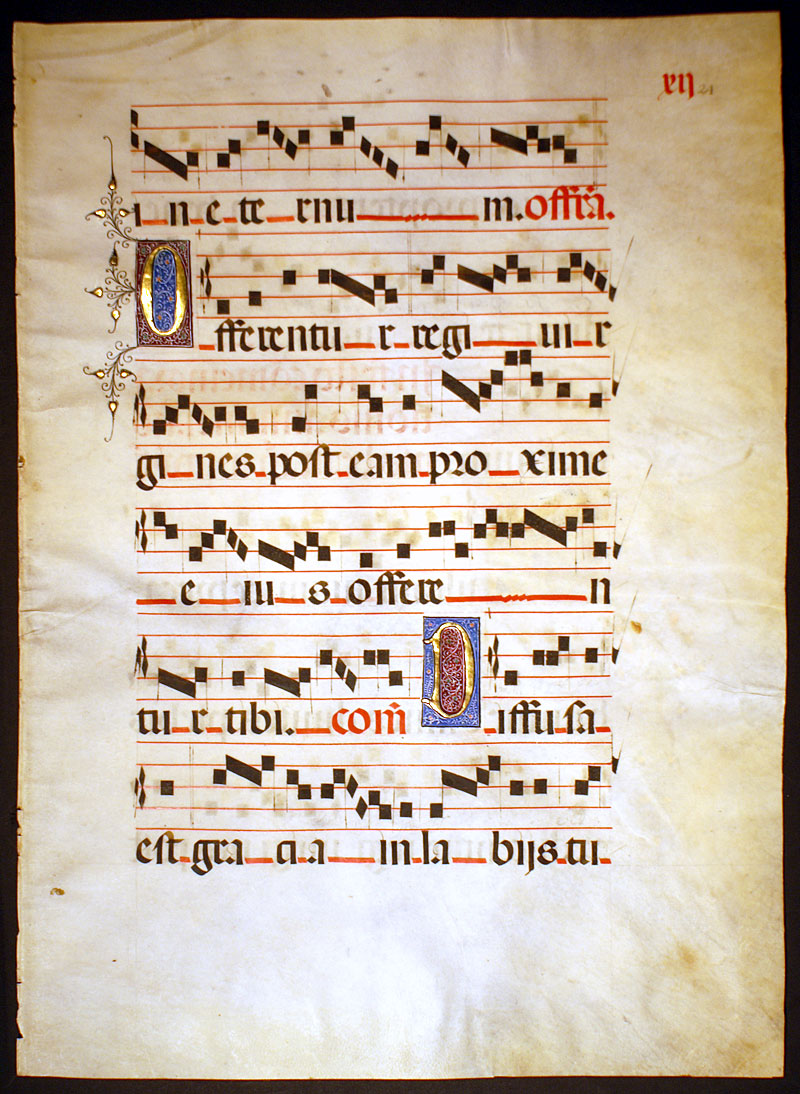 xij 21
in eternum. offra.
Offerentur regi uir
gines post eam proxime
eius offeren
tur tibi. com Diffusa
est gracia in labijs tu